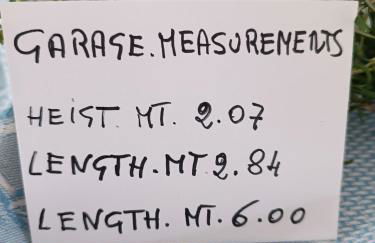 GARAGE.MEASUREMENTS
HEIGT. MT. 2.07
LENGTH.MT 2.84
LENGTH. MT. 6.00